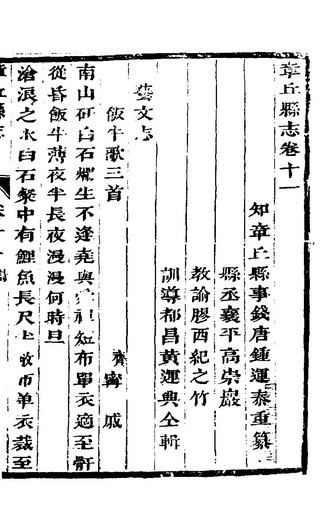 章丘縣志卷十一
知章丘縣事錢唐鍾運泰重纂
縣丞襄平高崇巖
教諭膠西紀之竹
訓導都昌黃運典仝輯
藝文志
飯牛歌三首
齊甯戚
南山矸白石爛生不逢堯與舜禪短布單衣適至骭
從昏飯牛薄夜半長夜漫漫何時旦
滄浪之水白石粲中有鯉魚長尺半敝布单衣裁至
章丘縣志